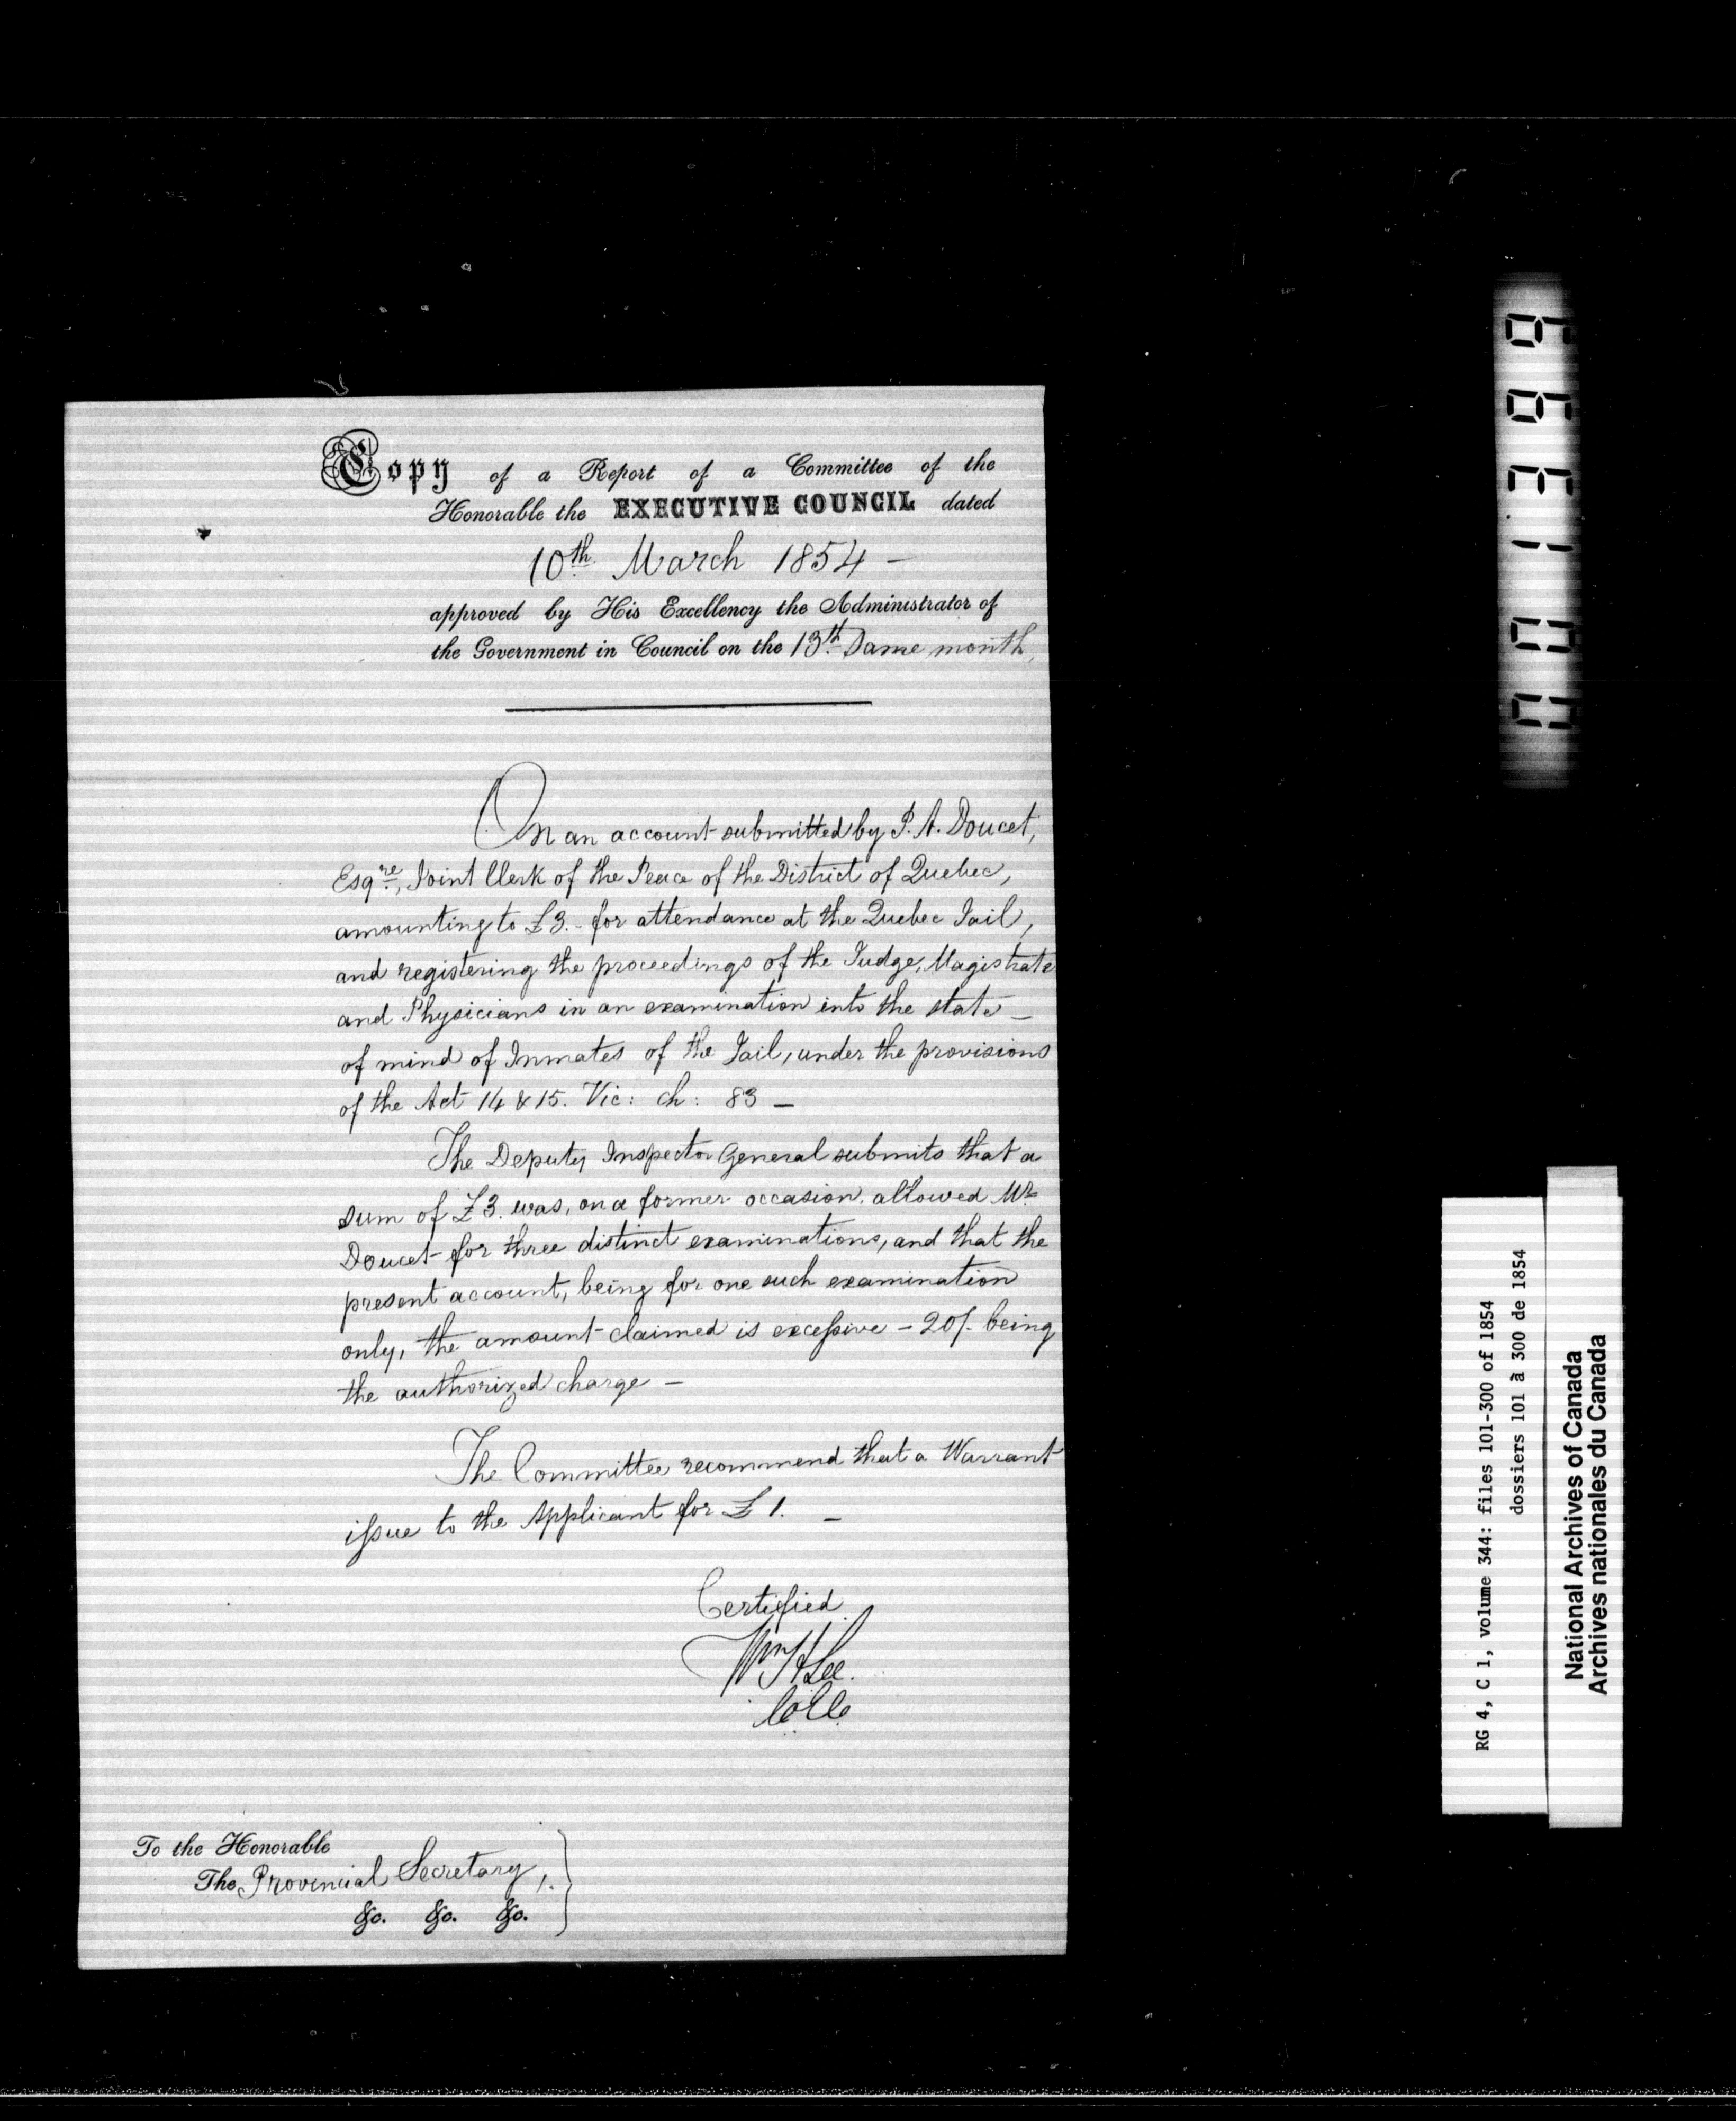 Copy of a Report of a Committee of the
Honorable the EXECUTIVE COUNCIL dated
10th March 1854 -
approved by His Excellency the Administrator of
the Government in Council on the 13th Same month,
On an account submitted by P. A. Doucet,
Esqre, Joint Clerk of the Peace of the District of Quebec,
amounting to £3.- for attendance at the Quebec Jail,
and registering the proceedings of the Judge, Magistrate
and Physicians in an examination into the state -
of mind of Inmates of the Jail, under the provisions
of the Act 14 & 15. Vic: ch: 83 -
The Deputy Inspector General submits that a
sum of £3. was, on a former occasion, allowed Mr
Doucet for three distinct examinations, and that the
present account, being for one such examination
only, the amount claimed is excessive - 20/- being
the authorized charge -
The Committee recommend that a Warrant
issue to the Applicant for £1. -
Certified
Wm H Lee.
C.E.C.
To the Honorable
The Provincial Secretary,
&c. &c. &c.
RG 4, C 1, volume 344: files 101-300 of 1854
dossiers 101 à 300 de 1854
National Archives of Canada
Archives nationales du Canada